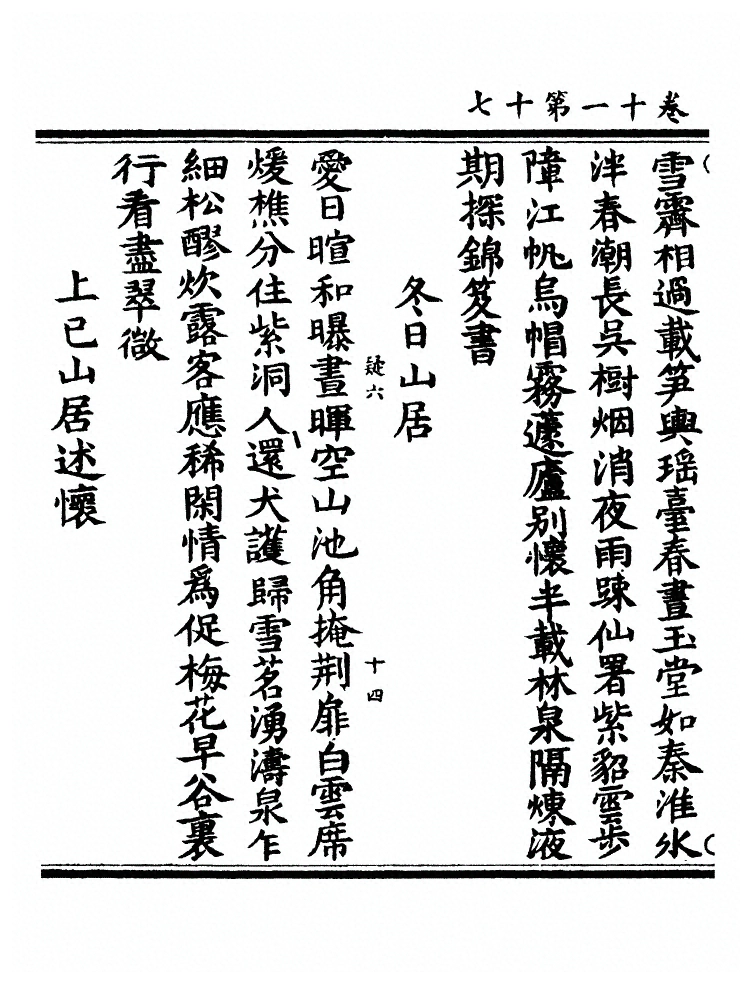 卷十一第十七
雪霽相過載筍輿瑶臺春晝玉堂如秦淮氷
泮春潮長吳樹烟消夜雨踈仙署紫貂雲步
障江帆烏帽霧蘧廬别懷半載林泉隔煉液
期探錦笈書
冬日山居
疑六
十四
愛日暄和曝晝暉空山池角掩荆扉白雲席
煖樵分住紫洞人還犬護歸雪茗湧濤泉乍
細松醪炊露客應稀閑情爲促梅花早谷裏
行看盡翠微
上已山居述懷